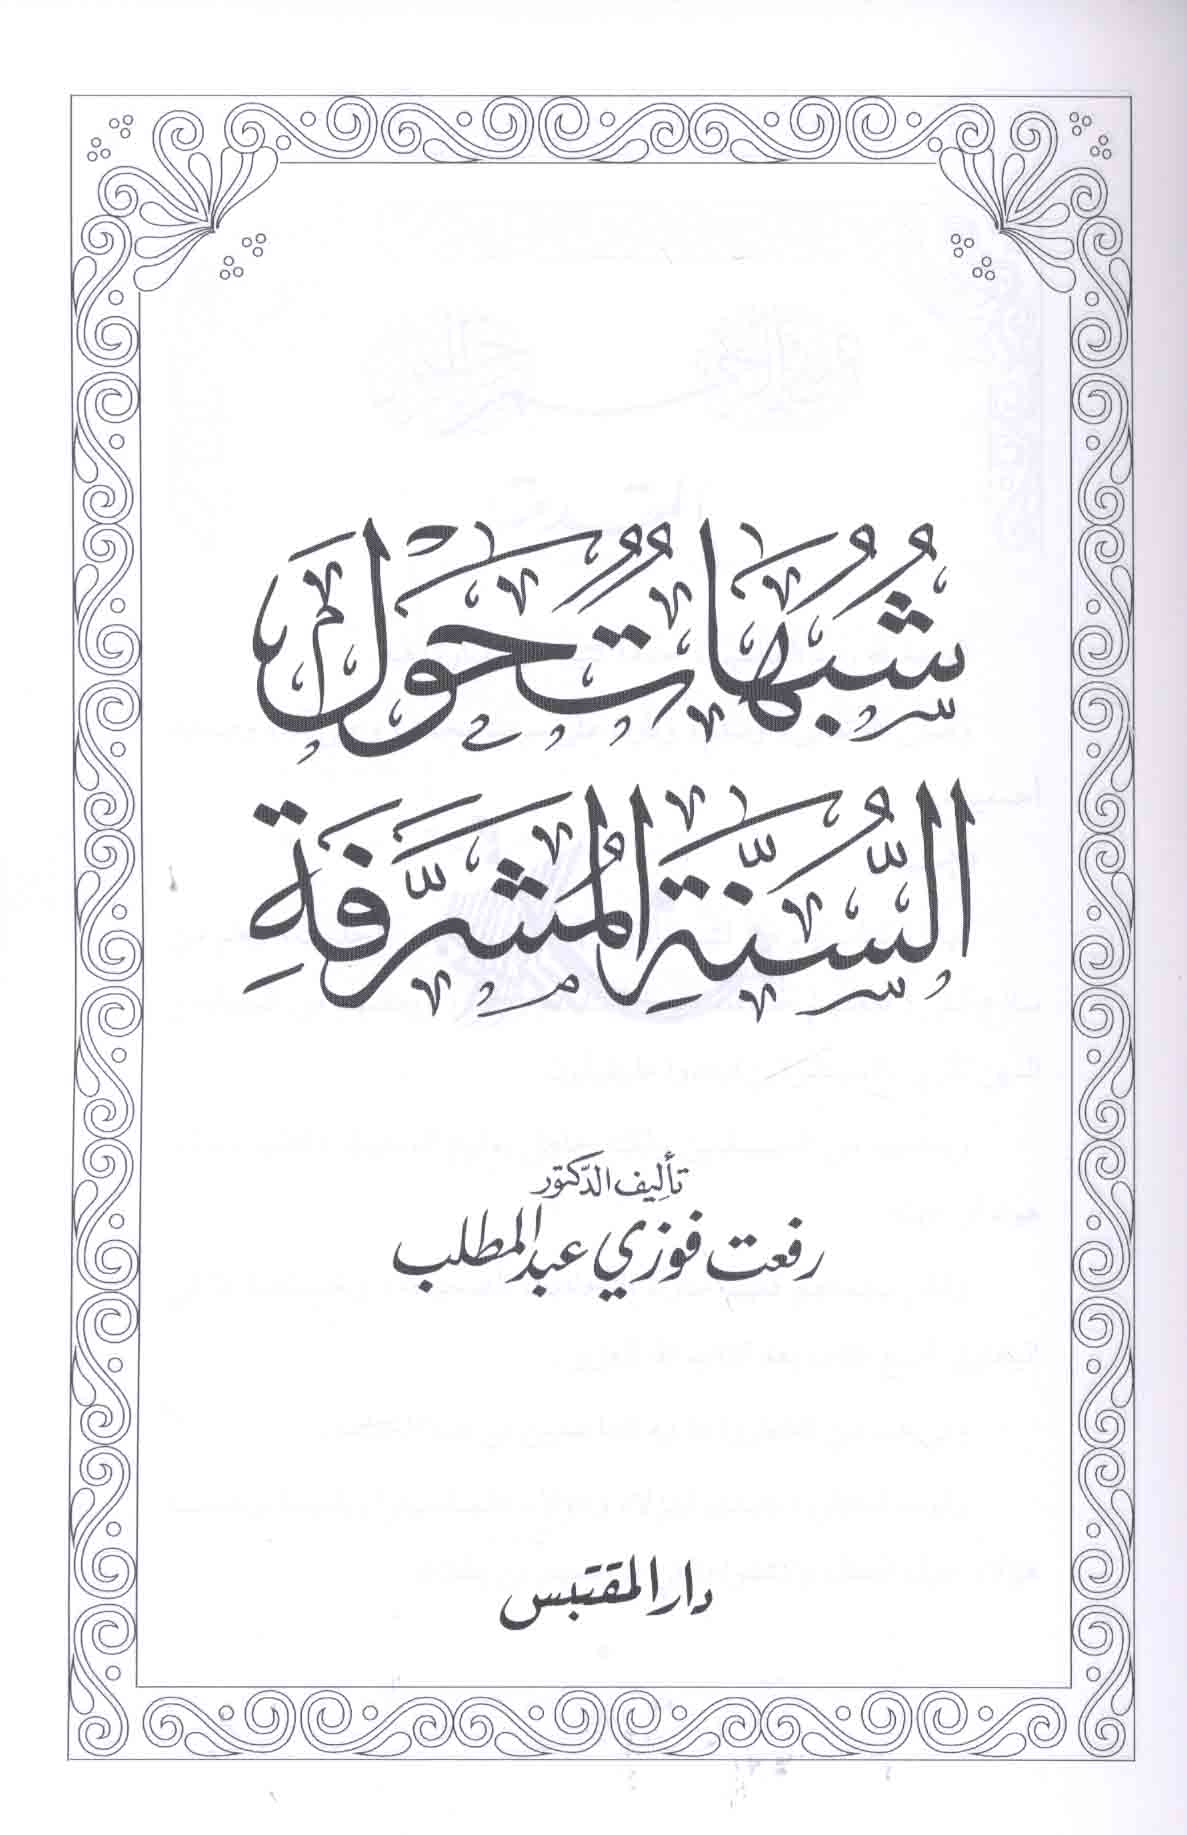 شُبُهَاتٌ حَوْلَ
السُّنَّةِ المُشَرَّفَةِ
تأليف الدّكتور
رفعت فوزي عبد المطلب
دار المقتبس